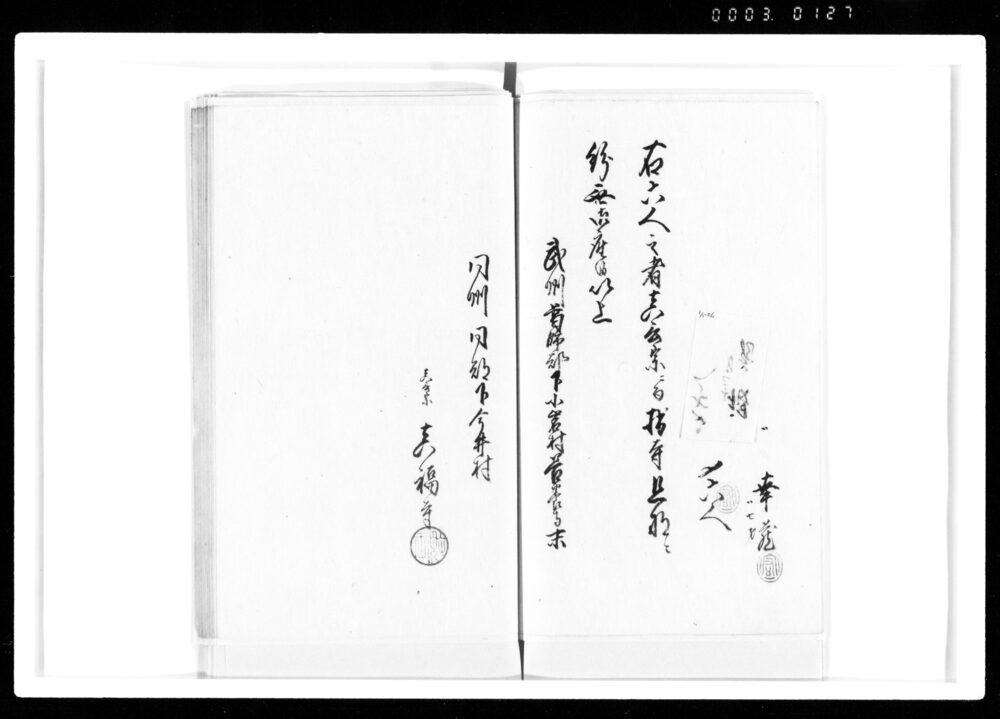 0003. 0127
幸蔵
〆六人
右六人之者真言宗ニ而拙寺旦那ニ
紛無御座候以上
武州葛飾郡下小岩村善養寺末
同州同郡下今井村
真言宗 真福寺